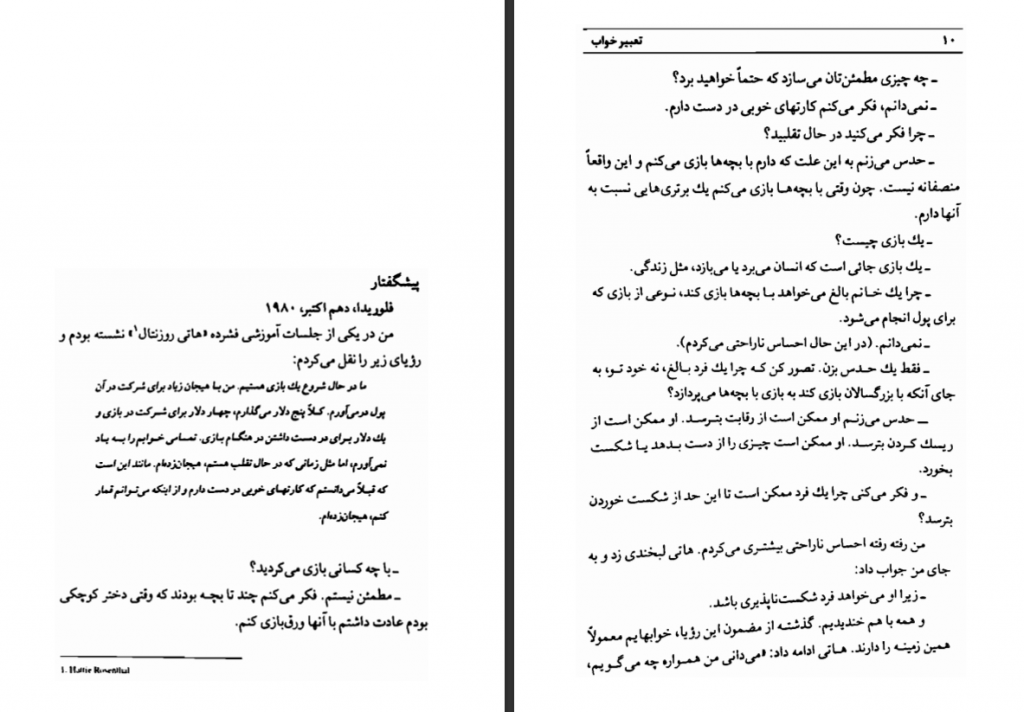 پیشگفتار
فلوریدا، دهم اکتبر، ۱۹۸۰
من در یکی از جلسات آموزشی فشرده «هاتی روزنتال۱» نشسته بودم و
رؤیای زیر را نقل می‌کردم:
ما در حال شروع یك بازی هستیم. من با هیجان زیاد برای شرکت در آن
پول درمی‌آورم. کلاً پنج دلار می‌گذارم، چهار دلار برای شرکت در بازی و
یك دلار برای در دست داشتن در هنگام بازی. تمامی خوابم را به یاد
نمی‌آورم، اما مثل زمانی که در حال تقلب هستم، هیجان‌زده‌ام. مانند این است
که قبلاً می‌دانستم که کارتهای خوبی در دست دارم و از اینکه می‌توانم قمار
کنم، هیجان‌زده‌ام.
ـ با چه کسانی بازی می‌کردید؟
ـ مطمئن نیستم. فکر می‌کنم چند تا بچه بودند که وقتی دختر کوچکی
بودم عادت داشتم با آنها ورق‌بازی کنم.
1. Hattie Rosenthal
۱۰ تعبیر خواب
ـ چه چیزی مطمئن‌تان می‌سازد که حتماً خواهید برد؟
ـ نمی‌دانم، فکر می‌کنم کارتهای خوبی در دست دارم.
ـ چرا فکر می‌کنید در حال تقلبید؟
ـ حدس می‌زنم به این علت که دارم با بچه‌ها بازی می‌کنم و این واقعاً
منصفانه نیست. چون وقتی با بچه‌ها بازی می‌کنم یك برتری‌هایی نسبت به
آنها دارم.
ـ یك بازی چیست؟
ـ یك بازی جائی است که انسان می‌برد یا می‌بازد، مثل زندگی.
ـ چرا یك خانم بالغ می‌خواهد با بچه‌ها بازی کند، نوعی از بازی که
برای پول انجام می‌شود.
ـ نمی‌دانم. (در این حال احساس ناراحتی می‌کردم).
ـ فقط یك حدس بزن. تصور کن که چرا یك فرد بالغ، نه خود تو، به
جای آنکه با بزرگسالان بازی کند به بازی با بچه‌ها می‌پردازد؟
ـ حدس می‌زنم او ممکن است از رقابت بترسد. او ممکن است از
ریسك کردن بترسد. او ممکن است چیزی را از دست بدهد یا شکست
بخورد.
ـ و فکر می‌کنی چرا یك فرد ممکن است تا این حد از شکست خوردن
بترسد؟
من رفته رفته احساس ناراحتی بیشتری می‌کردم. هاتی لبخندی زد و به
جای من جواب داد:
ـ زیرا او می‌خواهد فرد شکست‌ناپذیری باشد.
و همه با هم خندیدیم. گذشته از مضمون این رؤیا، خوابهایم معمولاً
همین زمینه را دارند. هاتی ادامه داد: «می‌دانی من همواره چه می‌گویم،